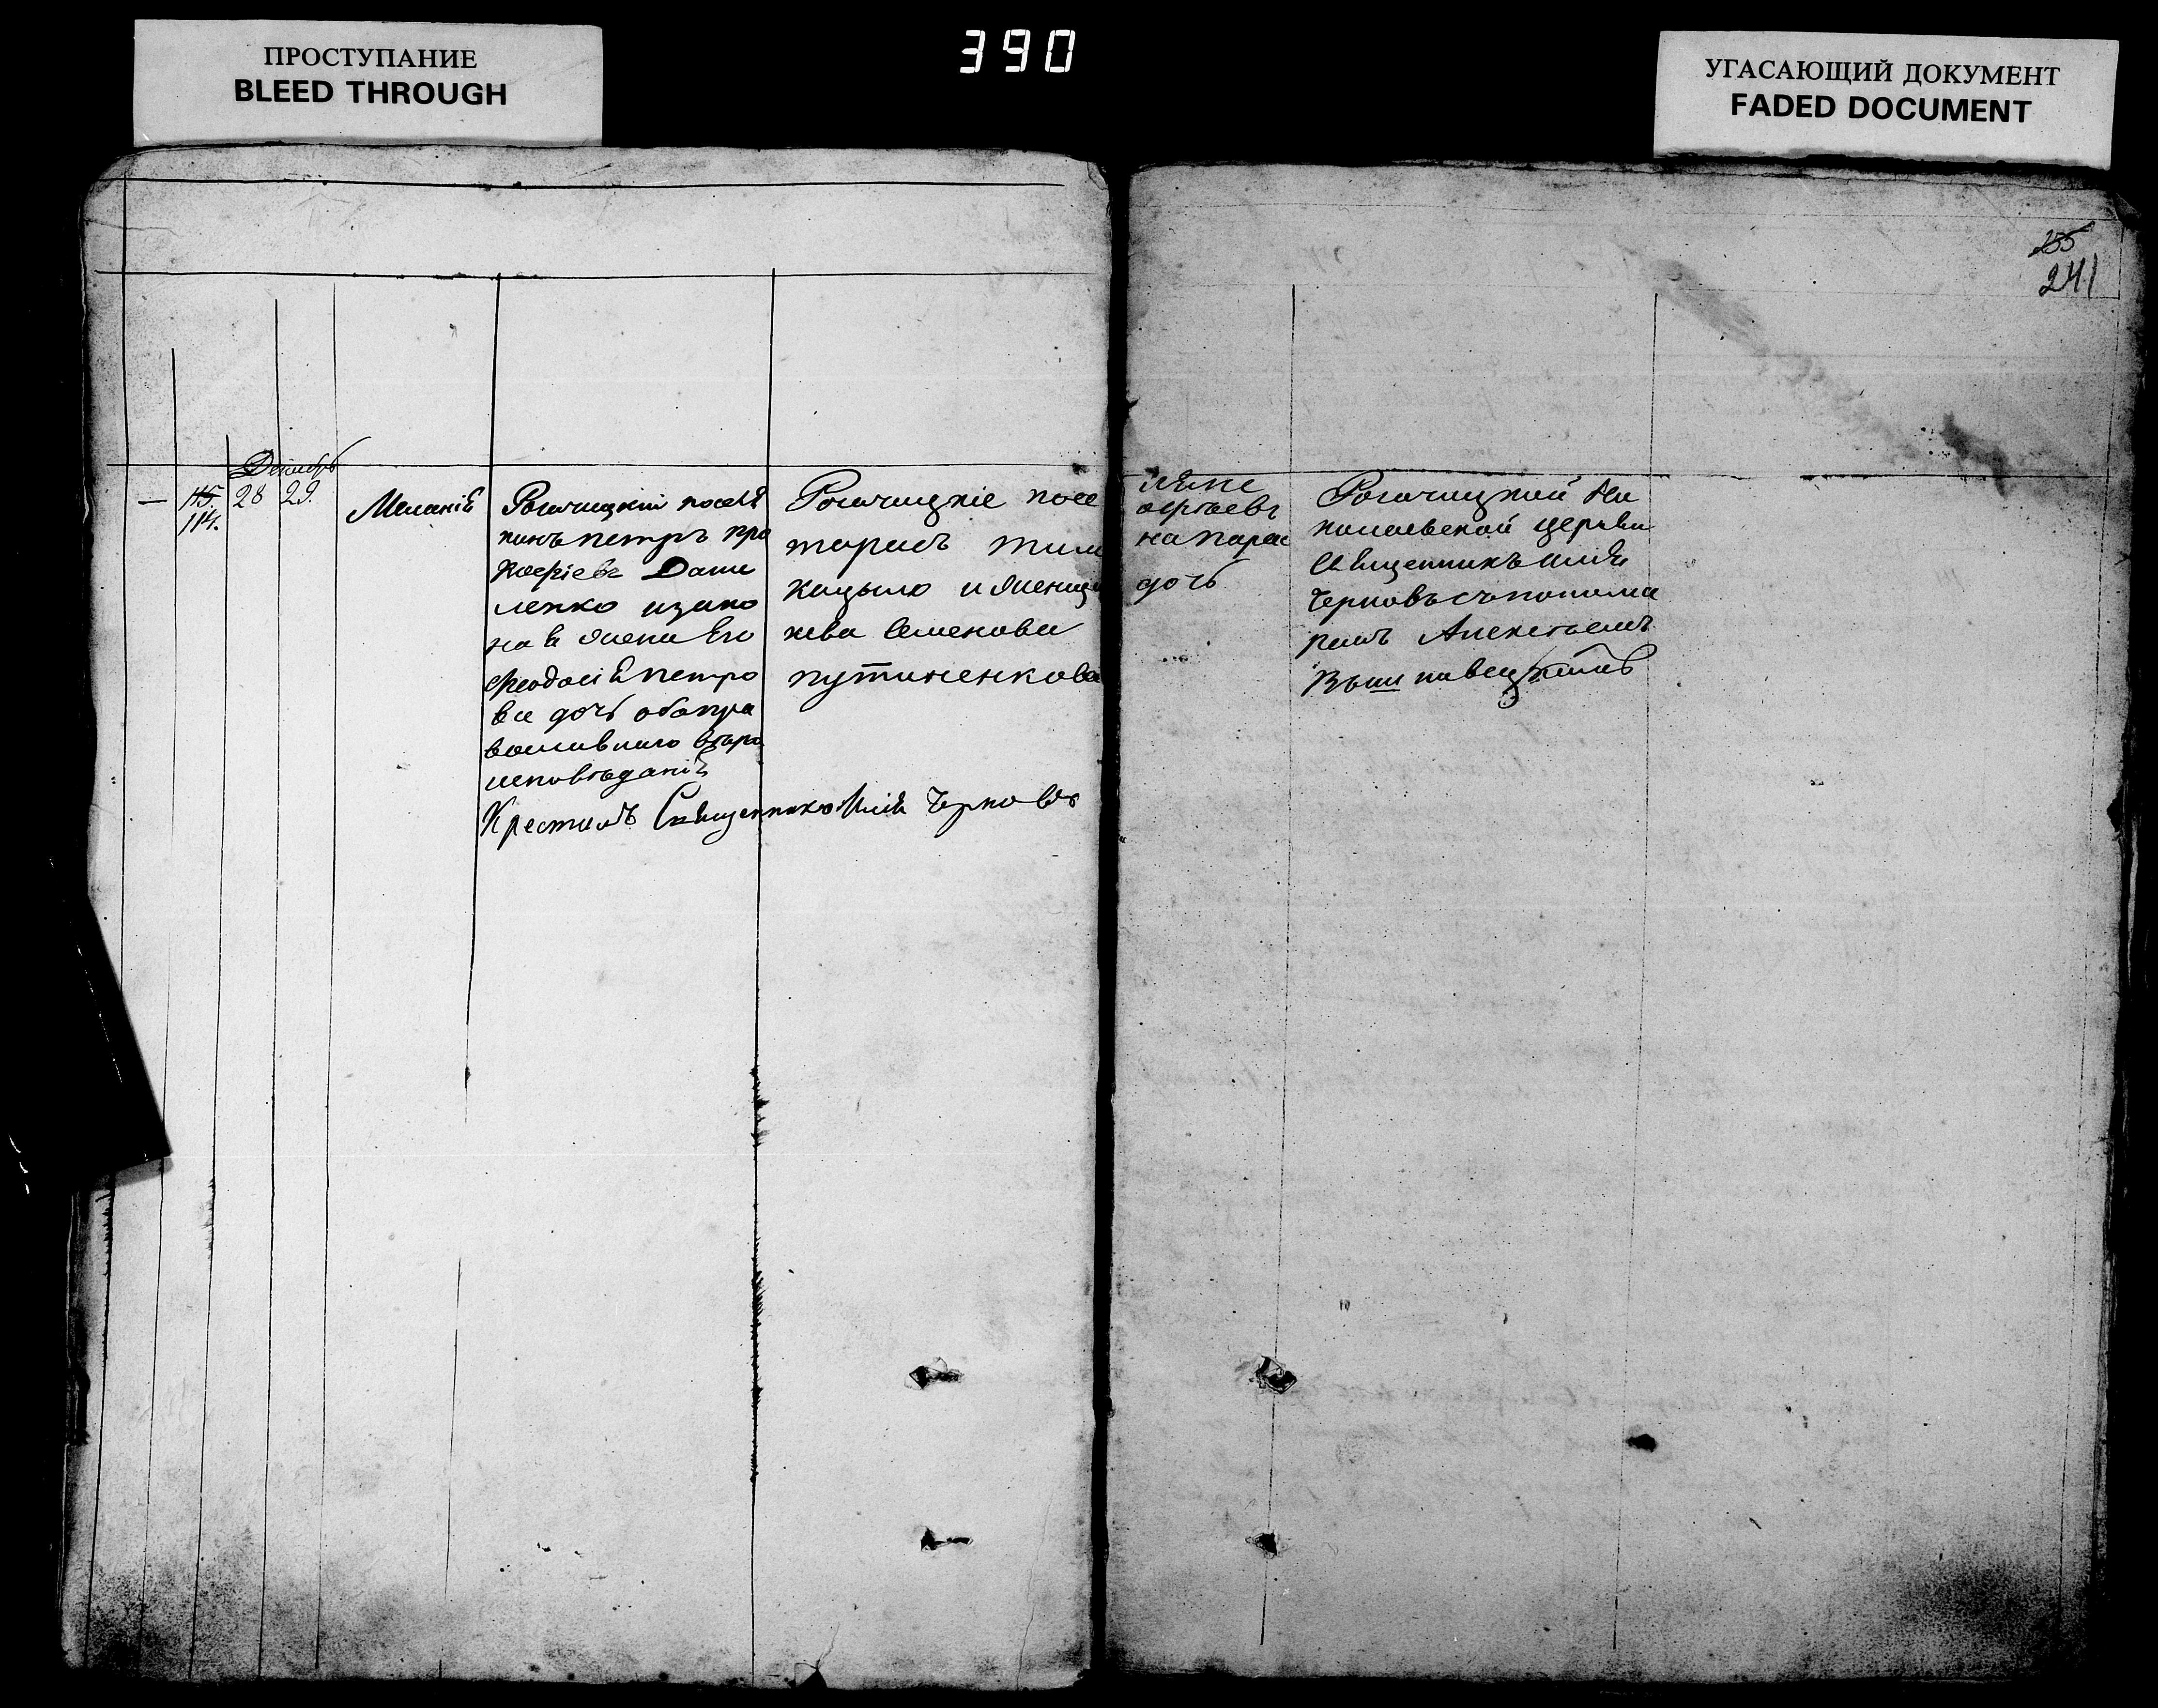 ПРОСТУПАНИЕ
BLEED THROUGH
390
УГАСАЮЩИЙ ДОКУМЕНТ
FADED DOCUMENT
155
241
Декабрь
— 115. 28 29.
114.
Меланіѣ
Рогачицкій поселя
нинъ петръ про
кофіевъ Дани
ленко изако
ная жена Его
Феодосія петро
ва дочь оба пра
вославнаго вѣро
исповѣданія
Крестилъ Священникъ Илія Черновъ
Рогачицкіе посе
тарасъ тим
Кицыло и женщи
кева Семенова
путиненкова
ляне
офѣевъ
на парас
дочь
Рогачицкой Ни
колаевской церкви
Священникъ Илія
Черновъ съ понома
ремъ Алексѣемъ
Вышнивецкимъ